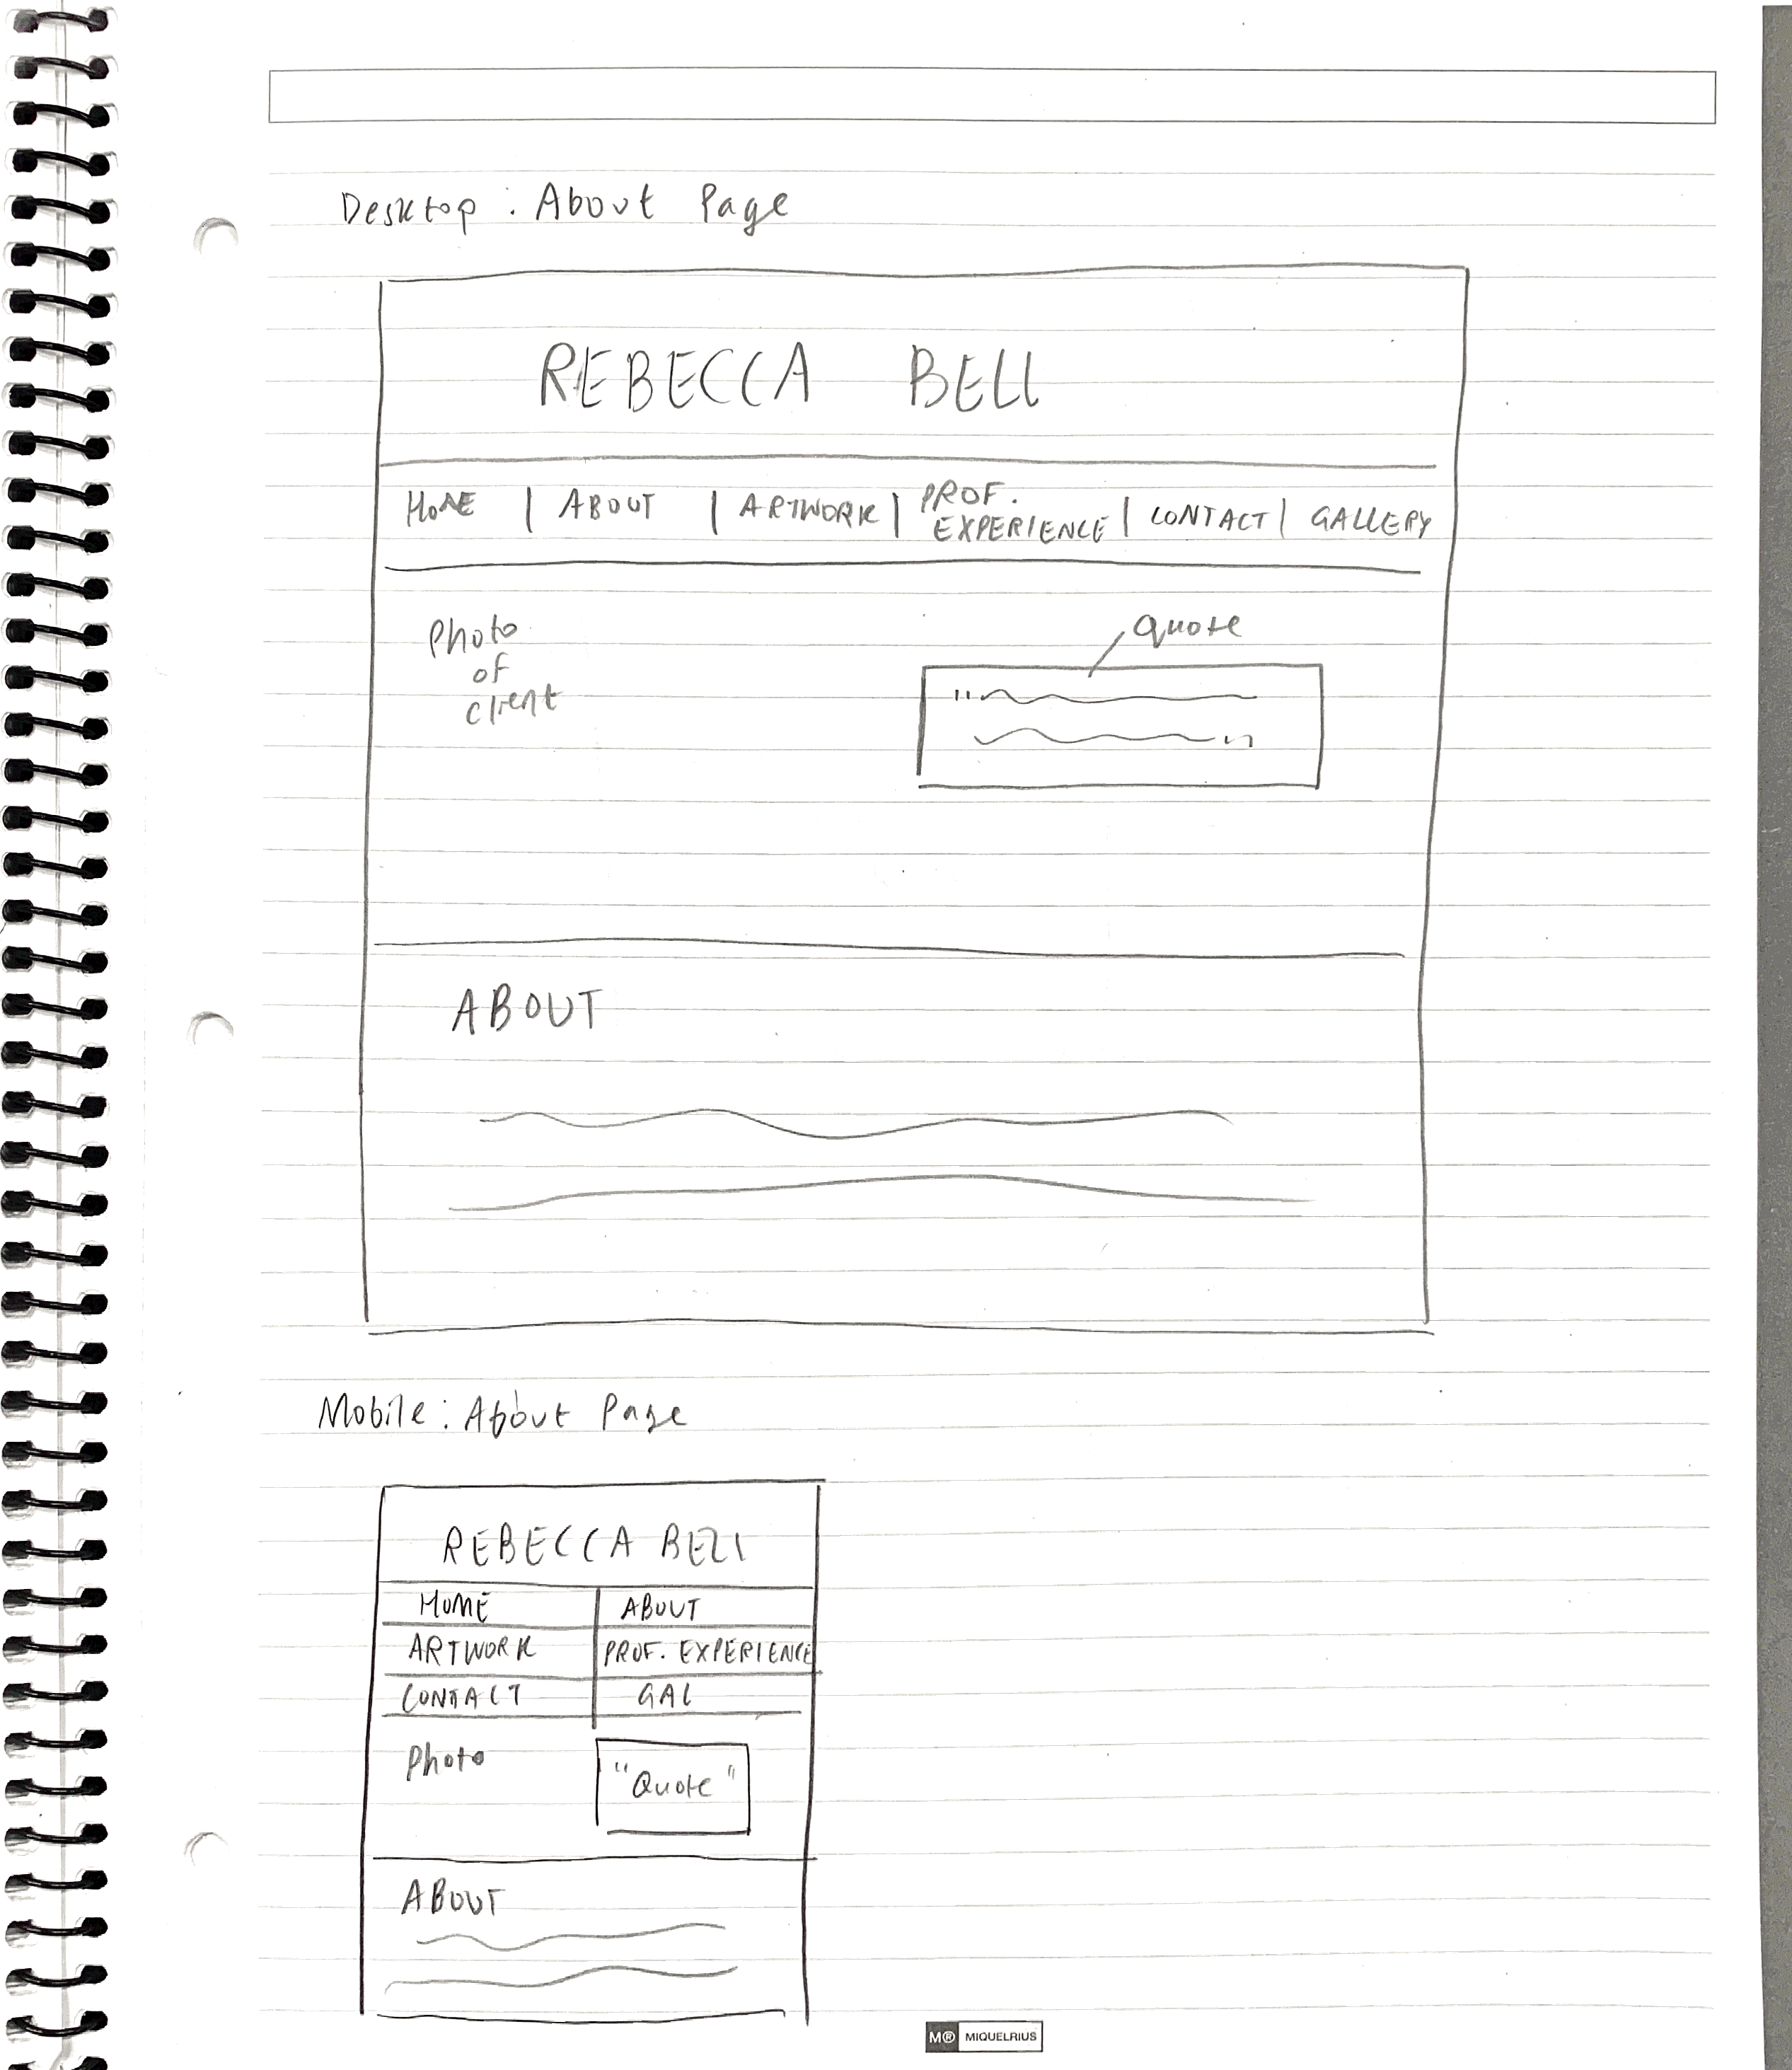 Desktop : About Page
REBECCA BELL
HOME | ABOUT | ARTWORK | PROF. EXPERIENCE | CONTACT | GALLERY
Photo
of
client
Quote
ABOUT
Mobile : About Page
REBECCA BELL
HOME ABOUT
ARTWORK PROF. EXPERIENCE
CONTACT GAL
Photo "Quote"
ABOUT
M® MIQUELRIUS